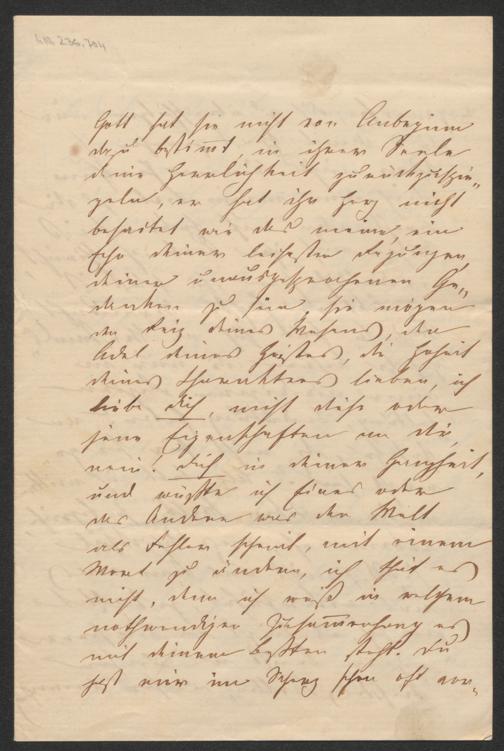 Gott hat sie nicht von Anbeginn
dazu bestimmt in ihrer Seele
deine Herrlichkeit zurückzuspie-
geln, er hat ihr Herz nicht
besaitet wie das meine, ein
Echo deiner leisesten Regungen,
deiner unausgesprochenen Ge-
danken zu sein sie mögen
den Reiz deines Wesens, den
Adel deines Geistes, die Hoheit
deines Charakters lieben, ich
liebe dich, nicht diese oder
jene Eigenschaften an dir,
nein! dich in deiner Ganzheit,
und wüßte ich Eines oder
das Andere was der Welt
als Fehler scheint, mit einem
Wort zu ändern, ich thät es
nicht, denn ich weiß in welchem
nothwendigen Zusammenhang es
mit deinem beßten steht. Du
hast mir im Scherz schon oft